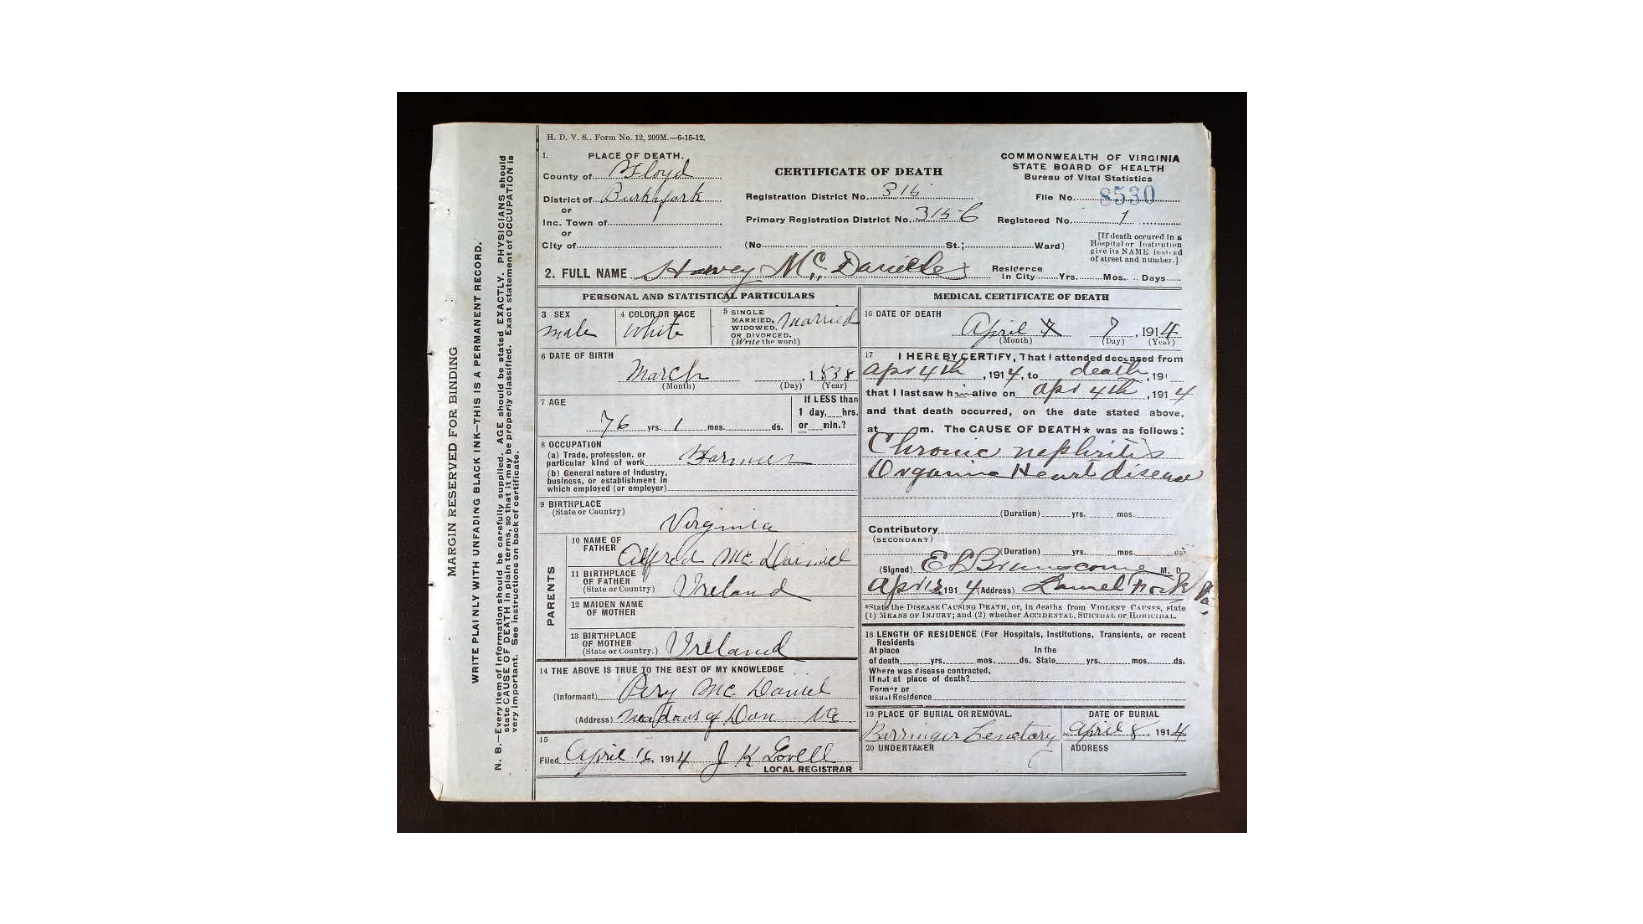 H. D. V. S.. Form No. 12, 200M.—6-15-12.
1. PLACE OF DEATH.
County of Floyd
District of Burksfork
or
Inc. Town of
or
City of
CERTIFICATE OF DEATH
Registration District No. 316
Primary Registration District No. 3156
(No. St.; Ward)
COMMONWEALTH OF VIRGINIA
STATE BOARD OF HEALTH
Bureau of Vital Statistics
File No. 8530
Registered No. 1
[If death occured in a
Hospital or Institution
give its NAME instead
of street and number.]
2. FULL NAME Harvey McDaniel
Residence
In City Yrs. Mos. Days
PERSONAL AND STATISTICAL PARTICULARS
3 SEX
male
4 COLOR OR RACE
White
5 SINGLE
MARRIED,
WIDOWED,
OR DIVORCED.
(Write the word)
Married
6 DATE OF BIRTH
March 1838
(Month) (Day) (Year)
7 AGE
76 yrs. 1 mos. ds.
If LESS than
1 day, hrs.
or min.?
8 OCCUPATION
(a) Trade, profession, or
particular kind of work Farmer
(b) General nature of industry,
business, or establishment in
which employed (or employer)
9 BIRTHPLACE
(State or Country)
Virginia
PARENTS
10 NAME OF
FATHER Alfred McDaniel
11 BIRTHPLACE
OF FATHER
(State or Country) Ireland
12 MAIDEN NAME
OF MOTHER
13 BIRTHPLACE
OF MOTHER
(State or Country.) Ireland
14 THE ABOVE IS TRUE TO THE BEST OF MY KNOWLEDGE
(Informant) Pery McDaniel
(Address) Meadows of Dan Va
15
Filed, April 16, 1914 J K Lovell
LOCAL REGISTRAR
MEDICAL CERTIFICATE OF DEATH
16 DATE OF DEATH
April 7, 1914
(Month) (Day) (Year)
17 I HEREBY CERTIFY, That I attended deceased from
apr 4th, 1914, to death, 191
that I last saw him alive on apr 4th, 1914
and that death occurred, on the date stated above,
at m. The CAUSE OF DEATH★ was as follows:
Chronic nephritis
Organic Heart disease
(Duration) yrs. mos.
Contributory
(SECONDARY)
(Duration) yrs. mos. ds.
(Signed) E L Branscome M. D.
Apr 1914 (Address) Laurel Fork Va
*State the DISEASE CAUSING DEATH, or, in deaths from VIOLENT CAUSES, state
(1) MEANS OF INJURY; and (2) whether ACCIDENTAL, SUICIDAL or HOMICIDAL.
18 LENGTH OF RESIDENCE (For Hospitals, Institutions, Transients, or recent
Residents
At place In the
of death yrs. mos. ds. State yrs. mos. ds.
Where was disease contracted,
If not at place of death?
Former or
usual Residence
19 PLACE OF BURIAL OR REMOVAL.
Barringer Cemetary
DATE OF BURIAL
April 8, 1914
20 UNDERTAKER
ADDRESS
MARGIN RESERVED FOR BINDING
WRITE PLAINLY WITH UNFADING BLACK INK—THIS IS A PERMANENT RECORD.
N. B.—Every item of information should be carefully supplied. AGE should be stated EXACTLY. PHYSICIANS should
state CAUSE OF DEATH in plain terms, so that it may be properly classified. Exact statement of OCCUPATION is
very important. See instructions on back of certificate.